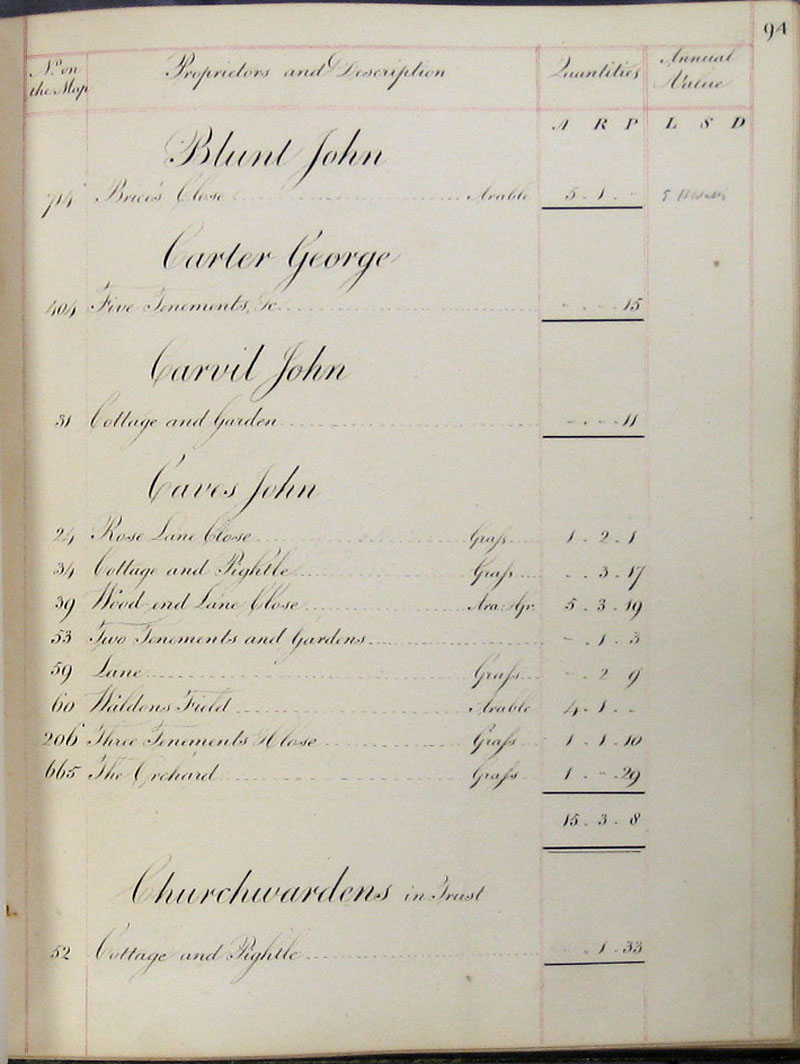 94
No. on the Map Proprietors and Description Quantities Annual Value
A R P L S D
Blunt John
714 Brice's Close Arable 5 . 1 . -
Carter George
404 Five Tenements, &c - . - . 15
Carvil John
31 Cottage and Garden - . - . 11
Caves John
24 Rose Lane Close Grass 1 . 2 . 1
34 Cottage and Pightle Grass - . 3 . 17
39 Wood end Lane Close Ara: & Gr. 5 . 3 . 19
53 Two Tenements and Gardens - . 1 . 3
59 Lane Grass - 2 9
60 Waldens Field Arable 4 . 1 . -
206 Three Tenements & Close Grass 1 . 1 . 10
665 The Orchard Grass 1 . - . 29
15 . 3 . 8
Churchwardens in Trust
52 Cottage and Pightle - . 1 . 33